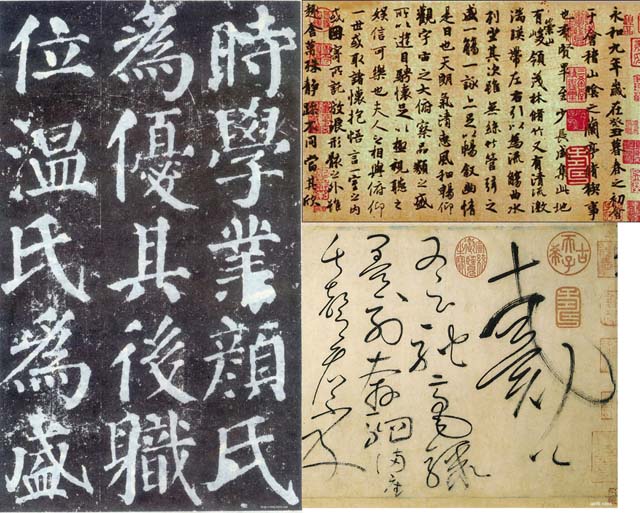 時學業顏氏
為優其後職
位溫氏為盛
永和九年歲在癸丑暮春之初會
于會稽山陰之蘭亭脩稧事
也羣賢畢至少長咸集此地
有崇山峻領茂林脩竹又有清流激
湍暎帶左右引以為流觴曲水
列坐其次雖無絲竹管弦之
盛一觴一詠亦足以暢敘幽情
是日也天朗氣清惠風和暢仰
觀宇宙之大俯察品類之盛
所以遊目騁懷足以極視聽之
娛信可樂也夫人之相與俯仰
一世或取諸懷抱悟言一室之內
或因寄所託放浪形骸之外雖
趣舍萬殊靜躁不同當其欣
戴公
又云馳毫驟
墨列奔駟滿座
失聲看不及
古希天子